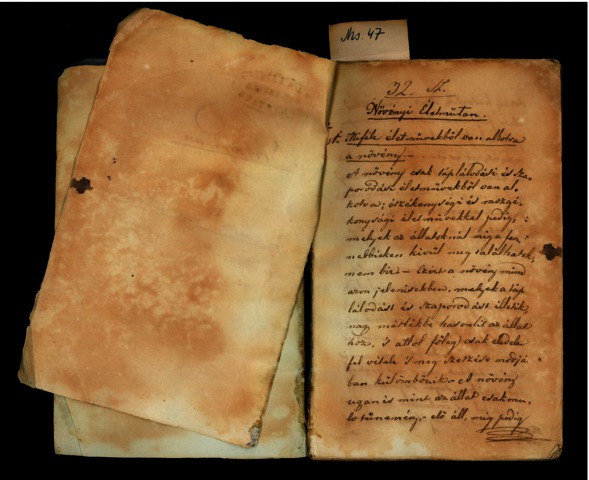 Ms. 47
32. §.
Növényi Életműtan.
Mifele életművekből van alkotva
a növény.
A növény csak táplálodási és sza-
porodási életművekből van al-
kotva; észékenységi és mozgé-
konysági életművekkel pedig,
melyek az állatoknál még a fen-
nebbieken kivül meg találhatok,
nem bir. – Ezért a növény mind
azon jelenésekben, melyek a táp
lálodást és szaporodást illetik,
nagy mértékbe hasonlit az állat
hoz, s attol főleg csak eledele
fel vétele s meg szerzése modjá
ban külömbözik. – A növény
ugyan is mint az állat csak
tünemény, elő áll, mig pedig